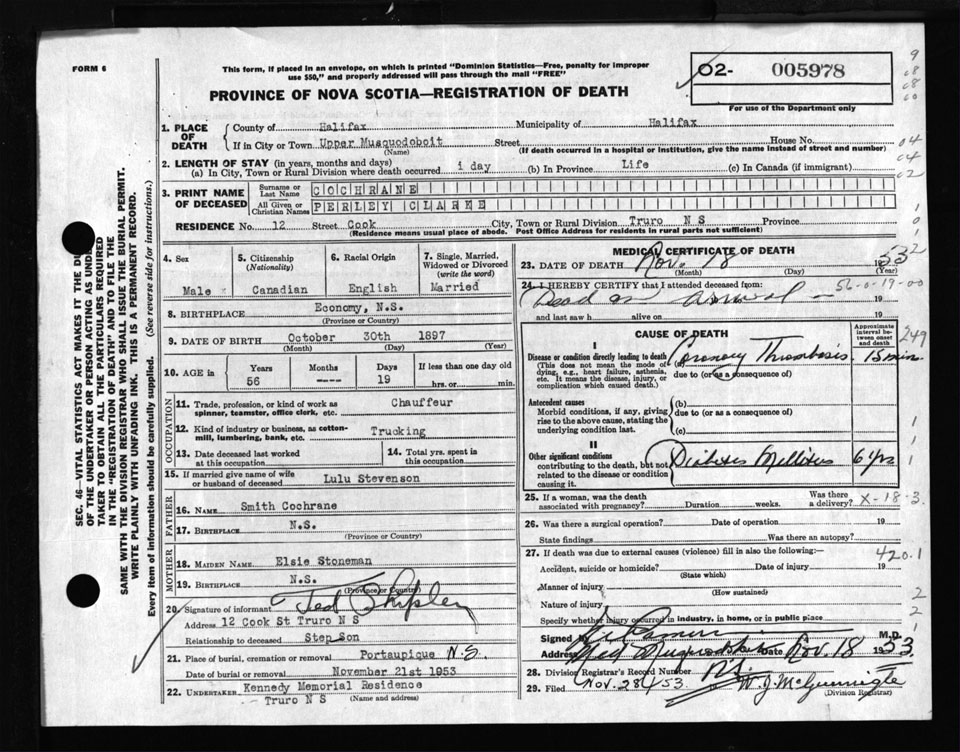 FORM 6
This form, if placed in an envelope, on which is printed "Dominion Statistics—Free, penalty for improper
use $50," and properly addressed will pass through the mail "FREE"
PROVINCE OF NOVA SCOTIA—REGISTRATION OF DEATH
02- 005978
For use of the Department only
SEC. 46—VITAL STATISTICS ACT MAKES IT THE DU
OF THE UNDERTAKER OR PERSON ACTING AS UNDE
TAKER TO OBTAIN ALL THE PARTICULARS REQUIRED
IN THE "REGISTRATION OF DEATH" AND TO FILE THE
SAME WITH THE DIVISION REGISTRAR WHO SHALL ISSUE THE BURIAL PERMIT.
WRITE PLAINLY WITH UNFADING INK. THIS IS A PERMANENT RECORD.
Every item of information should be carefully supplied. (See reverse side for instructions.)
1. PLACE OF DEATH County of Halifax Municipality of Halifax
If in City or Town Upper Musquodoboit Street House No.
(Name) (If death occurred in a hospital or institution, give the name instead of street and number)
2. LENGTH OF STAY (in years, months and days)
(a) In City, Town or Rural Division where death occurred 1 day (b) In Province Life (c) In Canada (if immigrant)
3. PRINT NAME OF DECEASED Surname or Last Name COCHRANE
All Given or Christian Names PERLEY CLARKE
RESIDENCE No. 12 Street Cook City, Town or Rural Division Truro N S Province
(Residence means usual place of abode. Post Office Address for residents in rural parts not sufficient)
4. Sex 5. Citizenship (Nationality) 6. Racial Origin 7. Single, Married, Widowed or Divorced (write the word)
Male Canadian English Married
8. BIRTHPLACE Economy, N.S.
(Province or Country)
9. DATE OF BIRTH October 30th 1897
(Month) (Day) (Year)
10. AGE in Years Months Days If less than one day old
56 --- 19 hrs. or min.
OCCUPATION
11. Trade, profession, or kind of work as spinner, teamster, office clerk, etc. Chauffeur
12. Kind of industry or business, as cotton-mill, lumbering, bank, etc. Trucking
13. Date deceased last worked at this occupation 14. Total yrs. spent in this occupation
15. If married give name of wife or husband of deceased Lulu Stevenson
FATHER
16. NAME Smith Cochrane
17. BIRTHPLACE N.S.
(Province or Country)
MOTHER
18. MAIDEN NAME Elsie Stoneman
19. BIRTHPLACE N.S.
(Province or Country)
20. Signature of informant Ted Shipley
Address 12 Cook St Truro N S
Relationship to deceased Step Son
21. Place of burial, cremation or removal Portaupique N.S.
Date of burial or removal November 21st 1953
22. UNDERTAKER Kennedy Memorial Residence
Truro N S (Name and address)
MEDICAL CERTIFICATE OF DEATH
23. DATE OF DEATH Nov. 18 1953
(Month) (Day) (Year)
24. I HEREBY CERTIFY that I attended deceased from: 56-0-19-00
Dead on arrival 19
and last saw h alive on 19
CAUSE OF DEATH
Approximate interval between onset and death
249
I
Disease or condition directly leading to death (a) Coronary Thrombosis 15 min.
(This does not mean the mode of dying, e.g., heart failure, asthenia, etc. It means the disease, injury, or complication which caused death.)
due to (or as a consequence of)
Antecedent causes (b)
Morbid conditions, if any, giving rise to the above cause, stating the underlying condition last.
due to (or as a consequence of)
(c)
II
Other significant conditions contributing to the death, but not related to the disease or condition causing it.
Diabetes Mellitus 6 yrs
25. If a woman, was the death associated with pregnancy? Duration weeks. Was there a delivery? X-18-3
26. Was there a surgical operation? Date of operation 19
State findings Was there an autopsy?
27. If death was due to external causes (violence) fill in also the following:— 420.1
Accident, suicide or homicide? Date of injury 19
(State which)
Manner of injury
(How sustained)
Nature of injury
Specify whether injury occurred in industry, in home, or in public place
Signed by M.D.
Address Date Nov. 18 1953
28. Division Registrar's Record Number
29. Filed Nov. 28/53
(Division Registrar)